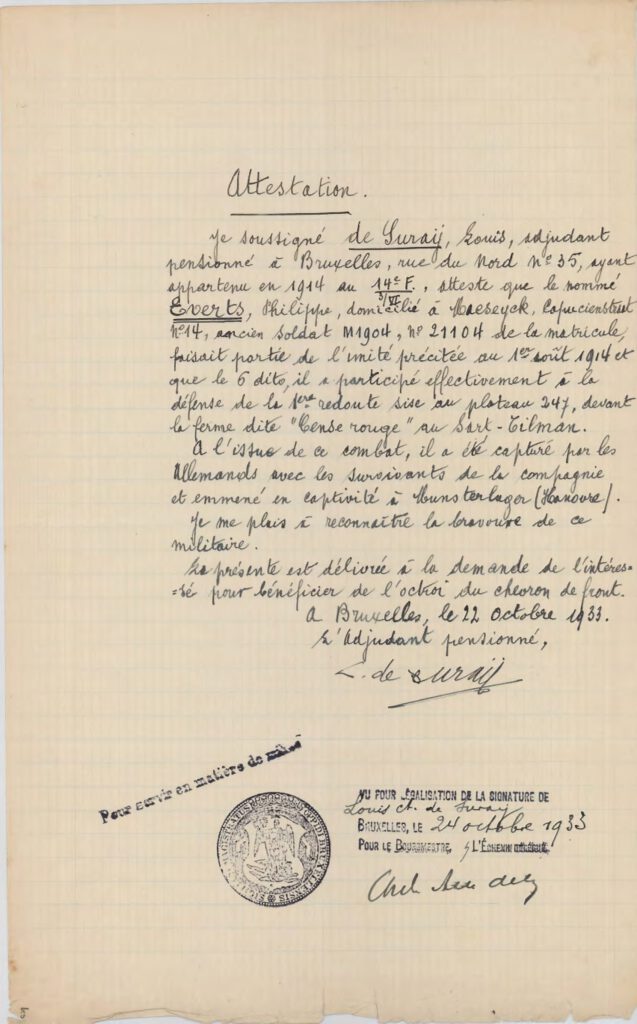 Attestation.
Je soussigné de Suraÿ, Louis, adjudant
pensionné à Bruxelles, rue du Nord N° 35, ayant
appartenu en 1914 au 14e F. 3/VI, atteste que le nommé
Everts, Philippe, domicilié à Maeseyck, Capucienstraat
N° 14, ancien soldat M1904, N° 21104 de la matricule,
faisait partie de l'unité précitée au 1er août 1914 et
que le 6 dito, il a participé effectivement à la
défense de la 1ere redoute sise au plateau 247, devant
la ferme dite "Cense rouge" au Sart-Tilman.
A l'issue de ce combat, il a été capturé par les
Allemands avec les survivants de la compagnie
et emmené en captivité à Munsterlager (Hanovre).
Je me plais à reconnaître la bravoure de ce
militaire.
La présente est délivrée à la demande de l'intéres=
=sé pour bénéficier de l'octroi du chevron de front.
A Bruxelles, le 22 Octobre 1933.
L'Adjudant pensionné,
L. de Suraÿ
Pour servir en matière de milice
VU POUR LÉGALISATION DE LA SIGNATURE DE
Louis de Suraÿ
BRUXELLES, LE 24 octobre 1933
POUR LE BOURGMESTRE, L'ÉCHEVIN